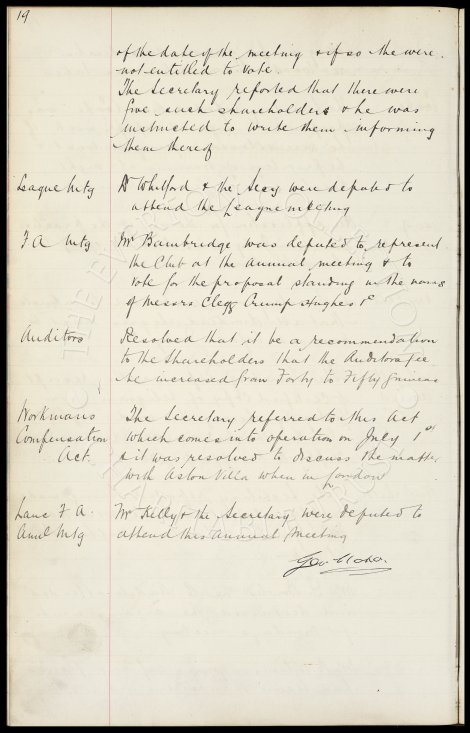 19
of the date of the meeting & if so the were
not entitled to vote.
The Secretary reported that there were
five such shareholders & he was
instructed to write them informing
them thereof
League Mtg Dr Whitford & the Secy were deputed to
attend the League meeting
F A Mtg Mr Bainbridge was deputed to represent
the Club at the annual meeting & to
vote for the proposal standing in the names
of Messrs Clegg Crump Hughes
Auditors Resolved that it be a recommendation
to the Shareholders that the Auditors fee
be increased from Forty to Fifty Guineas
Workmans The Secretary referred to this Act
Compensation which comes into operation on July 1st
Act. & it was resolved to discuss the matter
with Aston Villa when in London
Lanc F A. Mr Kelly & the Secretary were deputed to
Anul Mtg attend this Annual Meeting
Geo. Mahon